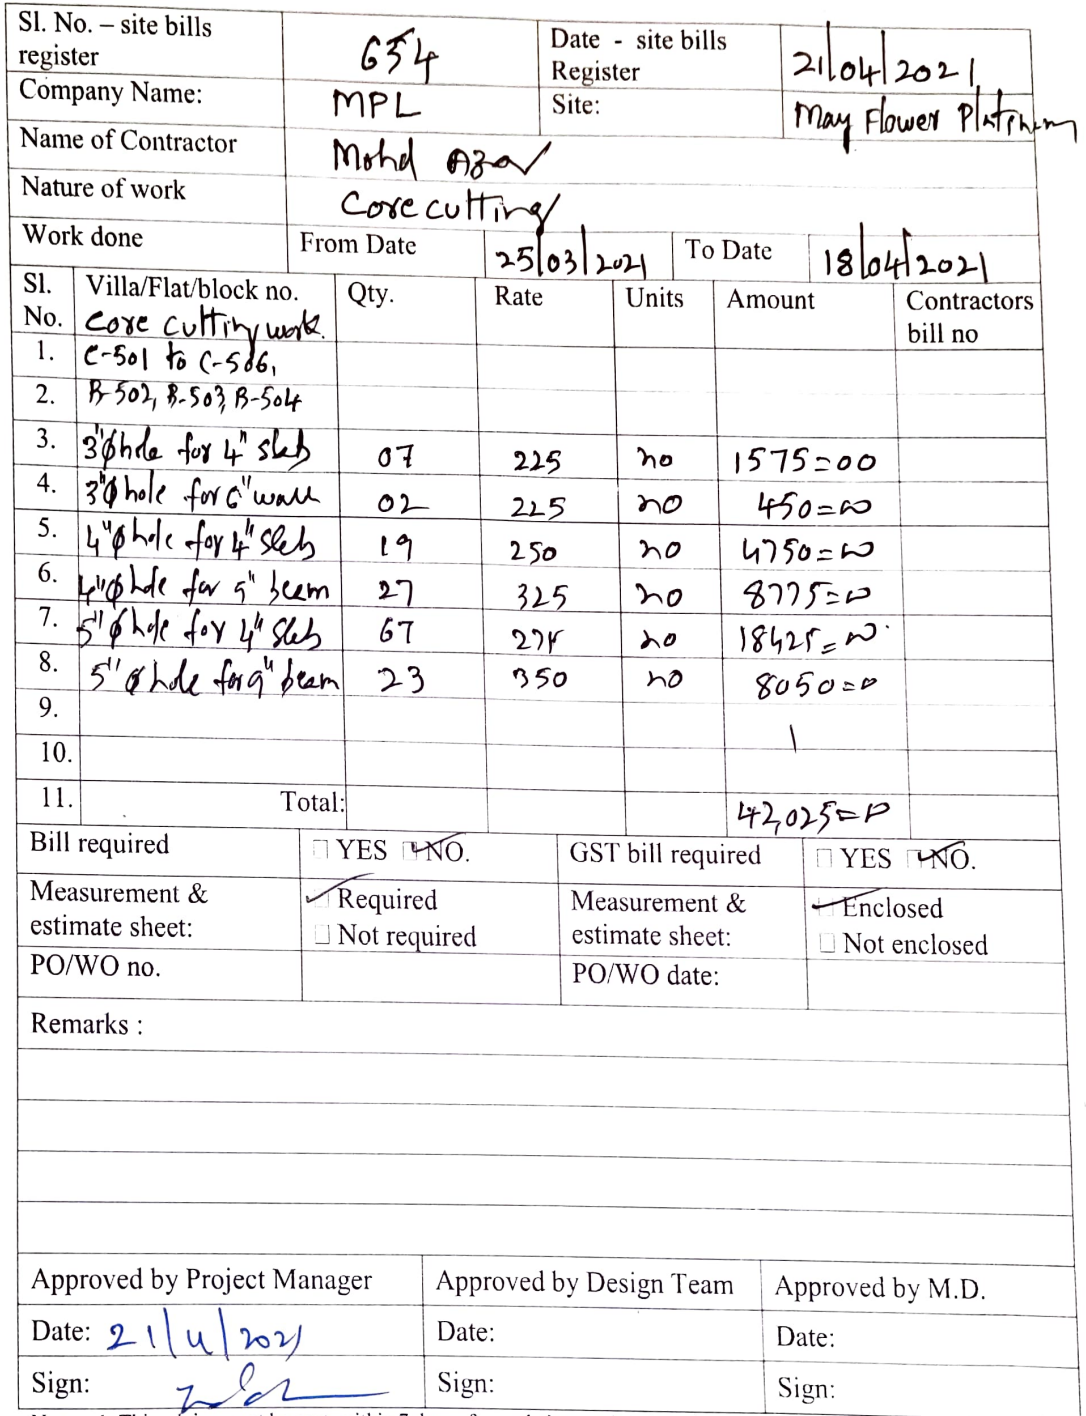 Sl. No. – site bills register 654 Date - site bills Register 21/04/2021
Company Name: MPL Site: May Flower Platinum
Name of Contractor Mohd Azar
Nature of work Core cutting
Work done From Date 25/03/2021 To Date 18/04/2021
Sl. No. Villa/Flat/block no. Qty. Rate Units Amount Contractors bill no
Core cutting work.
1. C-501 to C-506,
2. B-502, B-503, B-504
3. 3"ϕ hole for 4" slab 07 225 no 1575=00
4. 3"ϕ hole for 6" wall 02 225 no 450=00
5. 4"ϕ hole for 4" slab 19 250 no 4750=00
6. 4"ϕ hole for 9" beam 27 325 no 8775=00
7. 5"ϕ hole for 4" slab 67 275 no 18425=00
8. 5"ϕ hole for 9" beam 23 350 no 8050=0
9.
10.
11. Total: 42,025=0
Bill required YES NO. GST bill required YES NO.
Measurement & estimate sheet: Required Measurement & estimate sheet: Enclosed
Not required Not enclosed
PO/WO no. PO/WO date:
Remarks :
Approved by Project Manager Approved by Design Team Approved by M.D.
Date: 21/4/2021 Date: Date:
Sign: Sign: Sign: